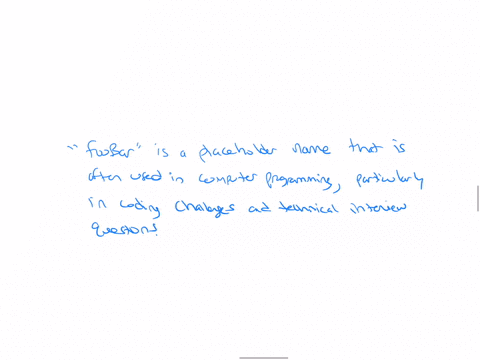 "fooBar" is a placeholder name that is
often used in computer programming, particularly
in coding challenges and technical interview
questions.